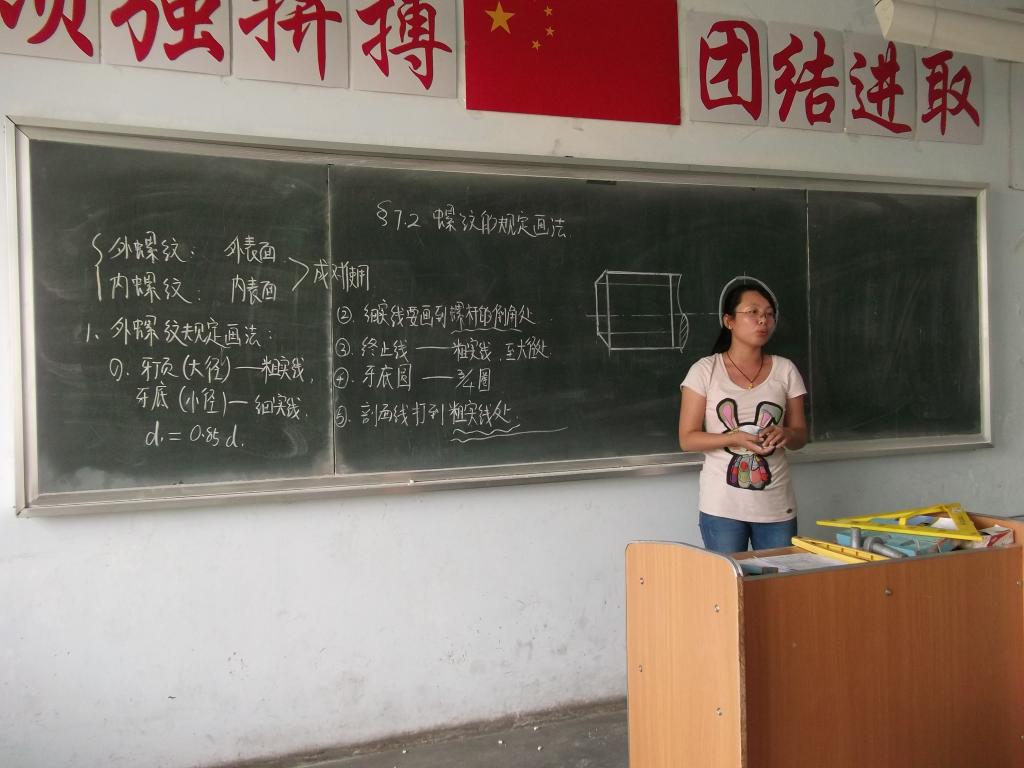 顽强拼搏
团结进取
§7.2 螺纹的规定画法
外螺纹: 外表面
内螺纹: 内表面
成对使用
1. 外螺纹规定画法:
①. 牙顶(大径)—粗实线,
牙底(小径)—细实线.
d₁=0.85d.
②. 细实线要画到螺杆的倒角处
③. 终止线——粗实线,至大径处.
④. 牙底圆——3/4圈
⑤. 剖面线打到粗实线处.